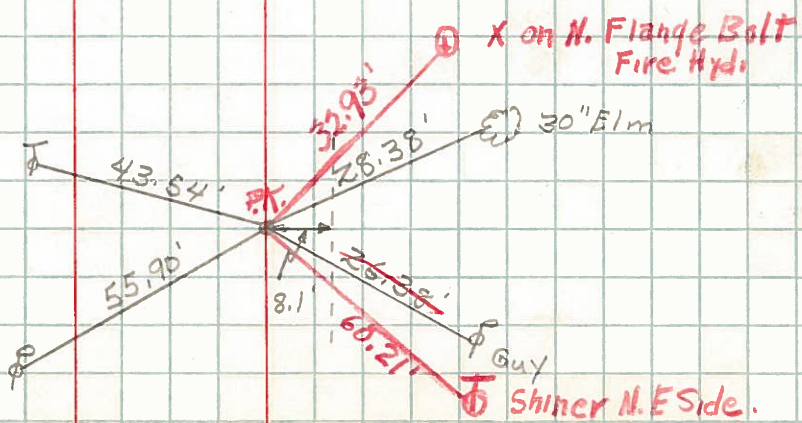 X on N. Flange Bolt
Fire Hyd.
32.93'
30" Elm
28.38'
43.54'
P.K.
55.90'
26.38'
8.1'
60.21'
Guy
Shiner N.E Side.